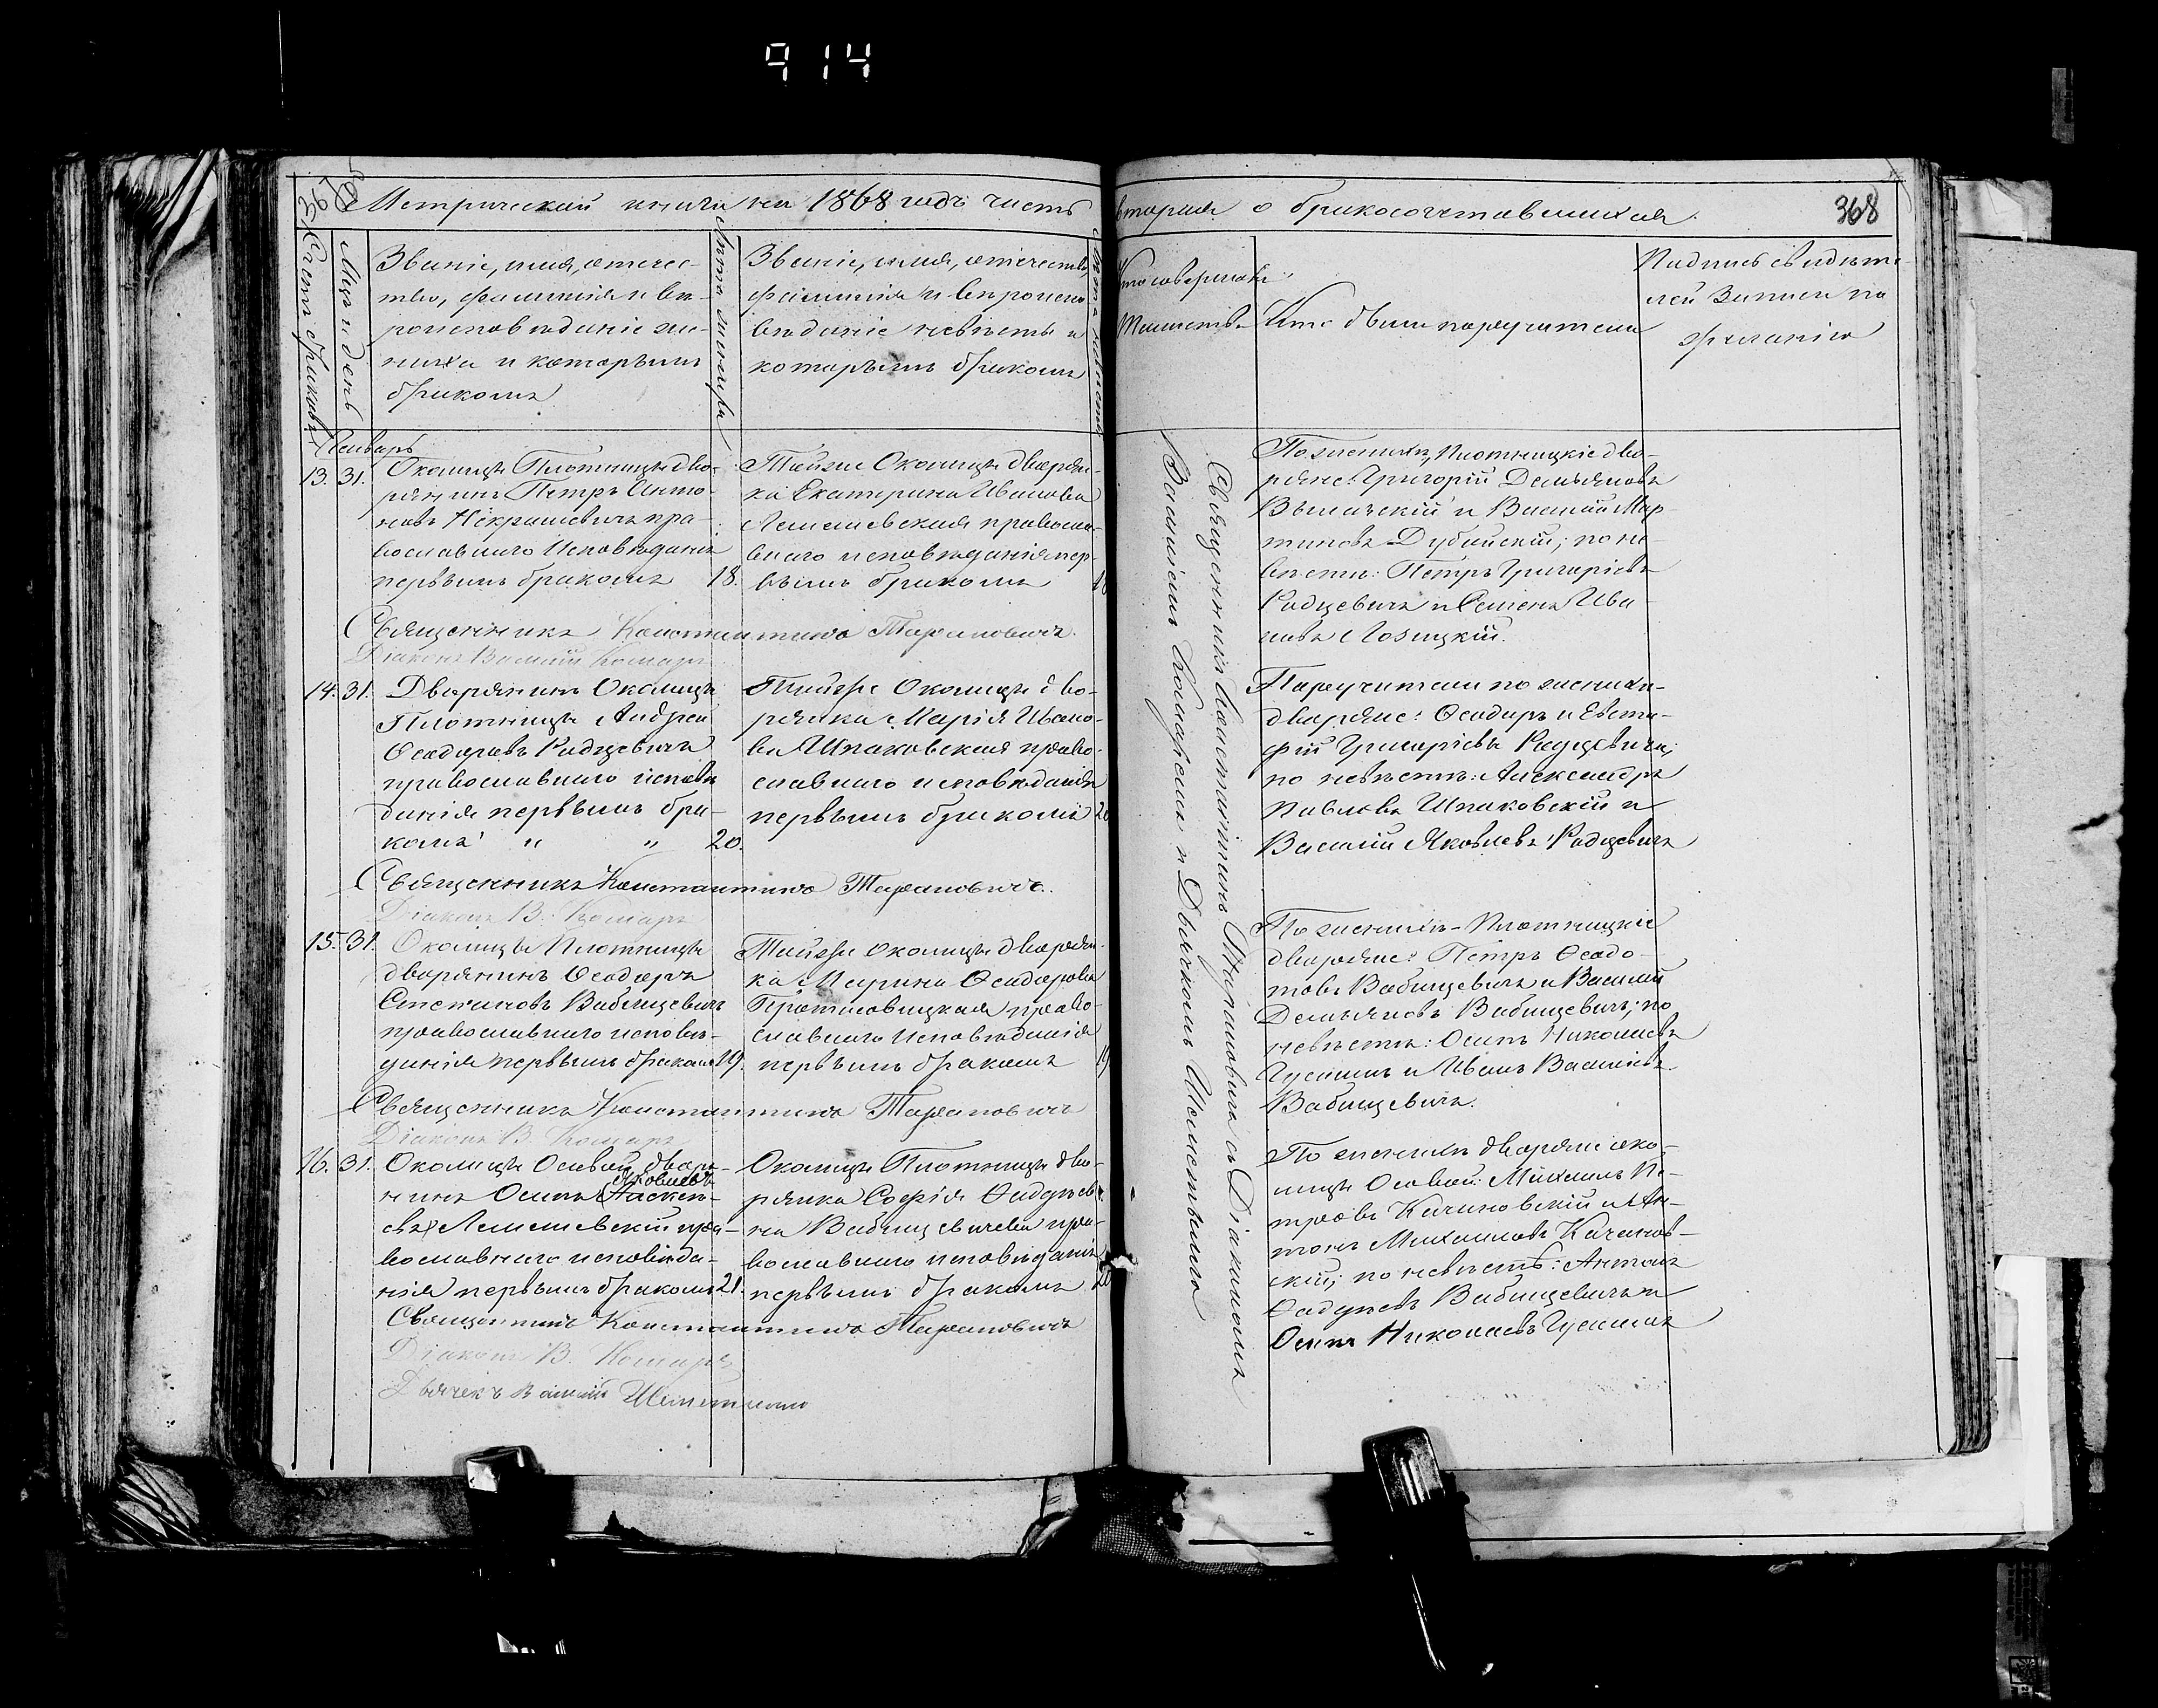 914
Метрической книги на 1868 годъ часть вторая о бракосочетавшихся.
368
Счетъ браковъ
Мцъ и день
Званіе, имя, отечес-
тво, фамилія и вѣ-
роисповѣданіе же-
ниха и которымъ
бракомъ
Лѣта жениха
Званіе, имя, отечество,
фамилія и вѣроиспо
вѣданіе невѣсты и
которымъ бракомъ
Лѣта невѣсты
Кто совершалъ
Таинство
Кто были поручители
Подпись свидѣте-
лей записи по
желанію
Январь
13. 31. Околицы Плотницы дво-
рянинъ Петръ Анто-
новъ Некрашевичъ пра-
вославнаго исповѣданія
первымъ бракомъ 18.
Тойже Околицы дворян-
ка Екатерина Иванова
Лемешевская правосла-
внаго исповѣданія пер-
вымъ бракомъ 18
По женихѣ, Плотницкіе дво-
ряне: Григорій Демьяновъ
Вылазскій и Василій Мар-
тиновъ Дубайскій; по не-
вѣстѣ: Петръ Григоріевъ
Родцевичъ и Семенъ Ива-
новъ Лозицкій.
Священникъ Константинъ Тарановичъ.
Діаконъ Василій Комаръ
14. 31. Дворянинъ Околицы
Плотницы Андрей
Ѳеодоровъ Родцевичъ
православнаго исповѣ
данія первымъ бра-
комъ " " 20.
Тойже Околицы дво-
рянка Марія Ивано-
ва Шпаковская право-
славнаго исповѣданія
первымъ бракомъ 20
Поручители по женихѣ-
дворяне: Ѳеодоръ и Евста-
фій Григоріевы Родцевичи;
по невѣстѣ: Александръ
Павловъ Шпаковскій и
Василій Яковлевъ Родцевичъ
Священникъ Константинъ Тарановичъ.
Діаконъ В. Комаръ
15. 31. Околицы Плотницы
дворянинъ Ѳеодоръ
Степановъ Вабищевичъ
православнаго исповѣ-
данія первымъ бракомъ 19.
Тойже околицы дворян-
ка Марина Ѳеодорова
Протасовицкая право-
славнаго исповѣданія
первымъ бракомъ 19
По женихѣ-Плотницкіе
дворяне: Петръ Ѳеодо-
товъ Вабищевичъ и Василій
Демьяновъ Вабищевичъ; по
невѣстѣ: Осипъ Николаевъ
Гусаимъ и Иванъ Васильевъ
Вабищевичъ.
Священникъ Константинъ Тарановичъ
Діаконъ В. Комаръ
16. 31. Околицы Осовой дворя-
нинъ Осипъ Яковлевъ
Лемешевскій пра-
вославнаго исповѣда-
нія первымъ бракомъ 21.
Околицы Плотницы дво-
рянка Софія Ѳадѣева
Вабищевичева пра-
вославнаго исповѣданія
первымъ бракомъ 20
По женихѣ дворяне око-
лицы Осовой: Михаилъ Пе-
тровъ Качановскій и Ан-
тонъ Михаиловъ Качанов-
скій; по невѣстѣ: Антонъ
Ѳадѣевъ Вабищевичъ и
Осипъ Николаевъ Гусаимъ
Священникъ Константинъ Тарановичъ
Діаконъ В. Комаръ
Дьячекъ Василій
Священникъ Константинъ Тарановичъ съ Діакономъ
Василіемъ Комаромъ и Дьячкомъ